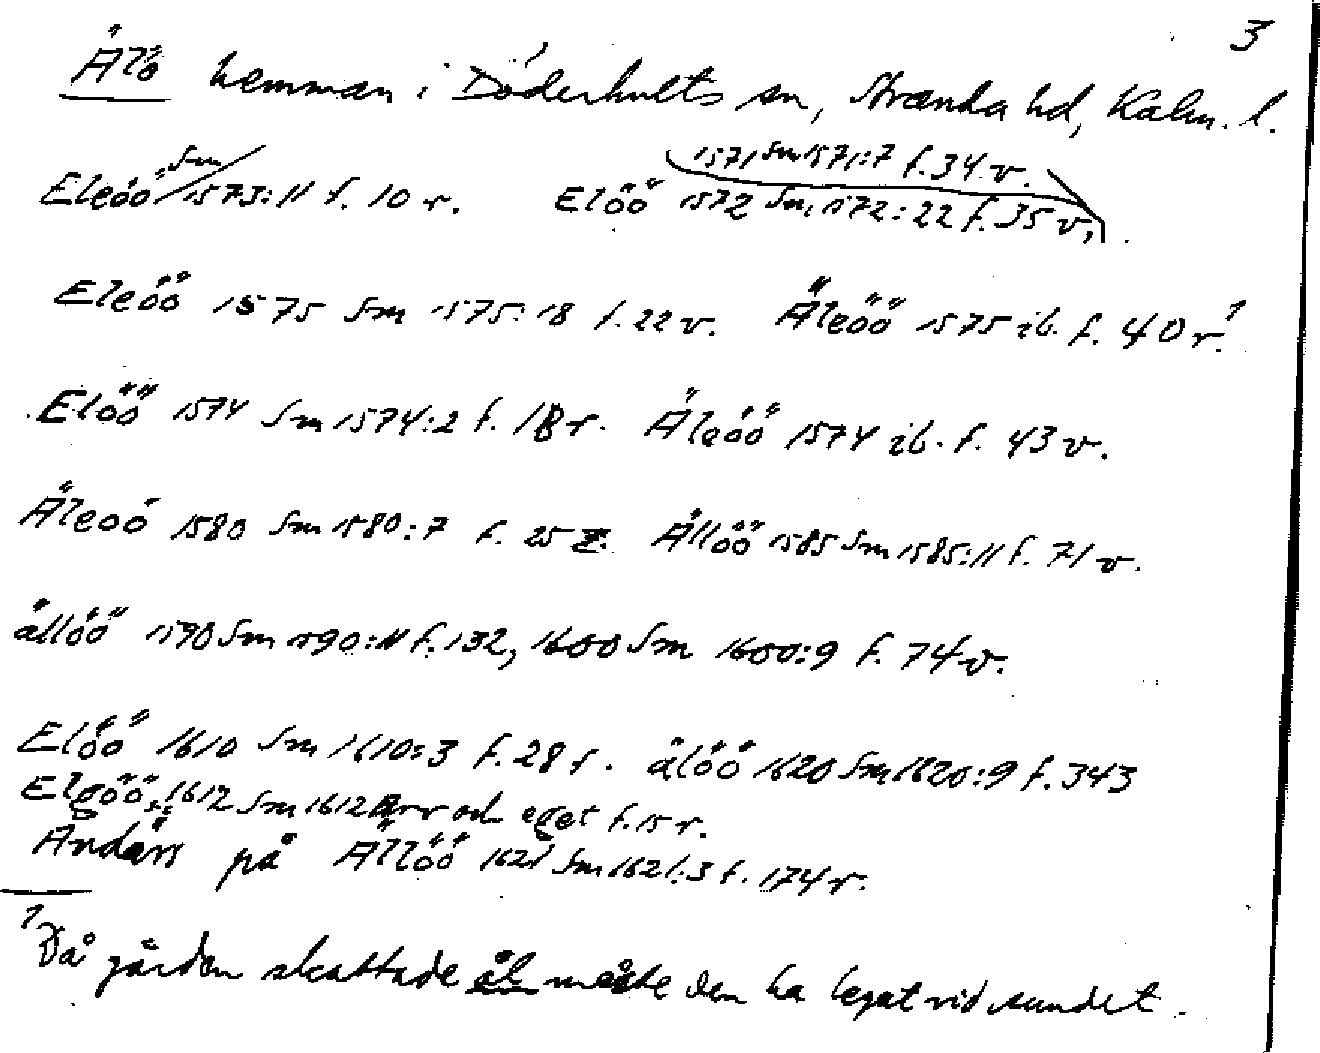 3
Ålö hemman i Döderhults sn, Stranda hd, Kalm. l.
Sm 1571 Sm 1571:7 f. 34 v.
Eleöö 1573:11 f. 10 r. Elöö 1572 Sm 1572:22 f. 35 v.
Eleöö 1575 Sm 1575:18 f. 22 v. Äleöö 1575 ib. f. 40 r.¹
Elöö 1574 Sm 1574:2 f. 18 r. Äleöö 1574 ib. f. 43 v.
Äleoö 1580 Sm 1580:7 f. 25 Ållöö 1585 Sm 1585:11 f. 71 v.
ållöö 1590 Sm 1590:11 f. 132, 1600 Sm 1600:9 f. 74 v.
Elöö 1610 Sm 1610:3 f. 28 r. älöö 1620 Sm 1620:9 f. 343
1612 Sm 1612 Arr och eget f. 15 r.
Anders på Ällöö 1621 Sm 1621:3 f. 174 r.
¹ Då gården skattade ål måste den ha legat vid sundet.